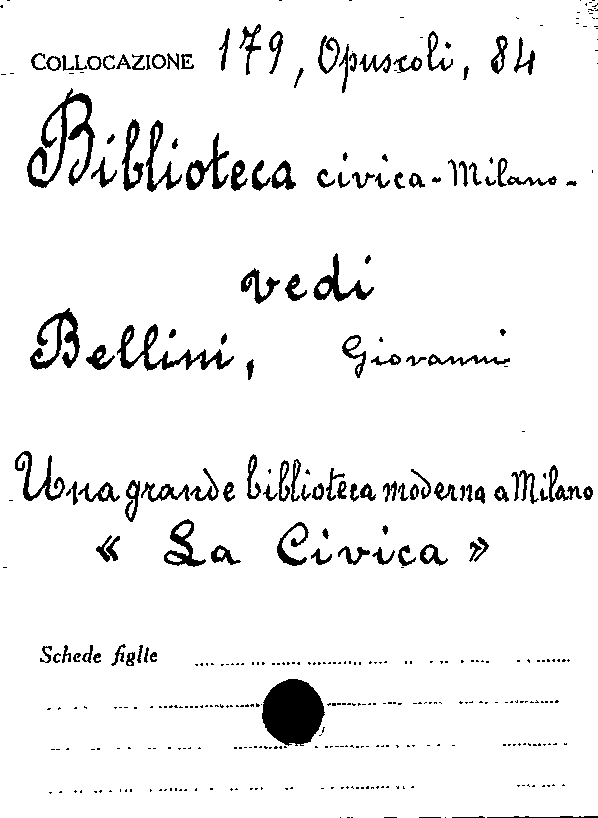 COLLOCAZIONE 179, Opuscoli, 84
Biblioteca civica - Milano -
vedi
Bellini, Giovanni
Una grande biblioteca moderna a Milano
« La Civica »
Schede figlie